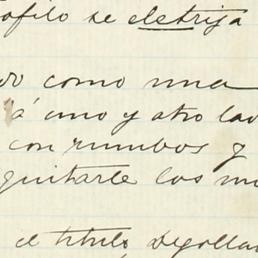 ofilo se eletriza
do como una
á uno y otro lad
con rumbos y
quitarle los m
el titulo, degollar